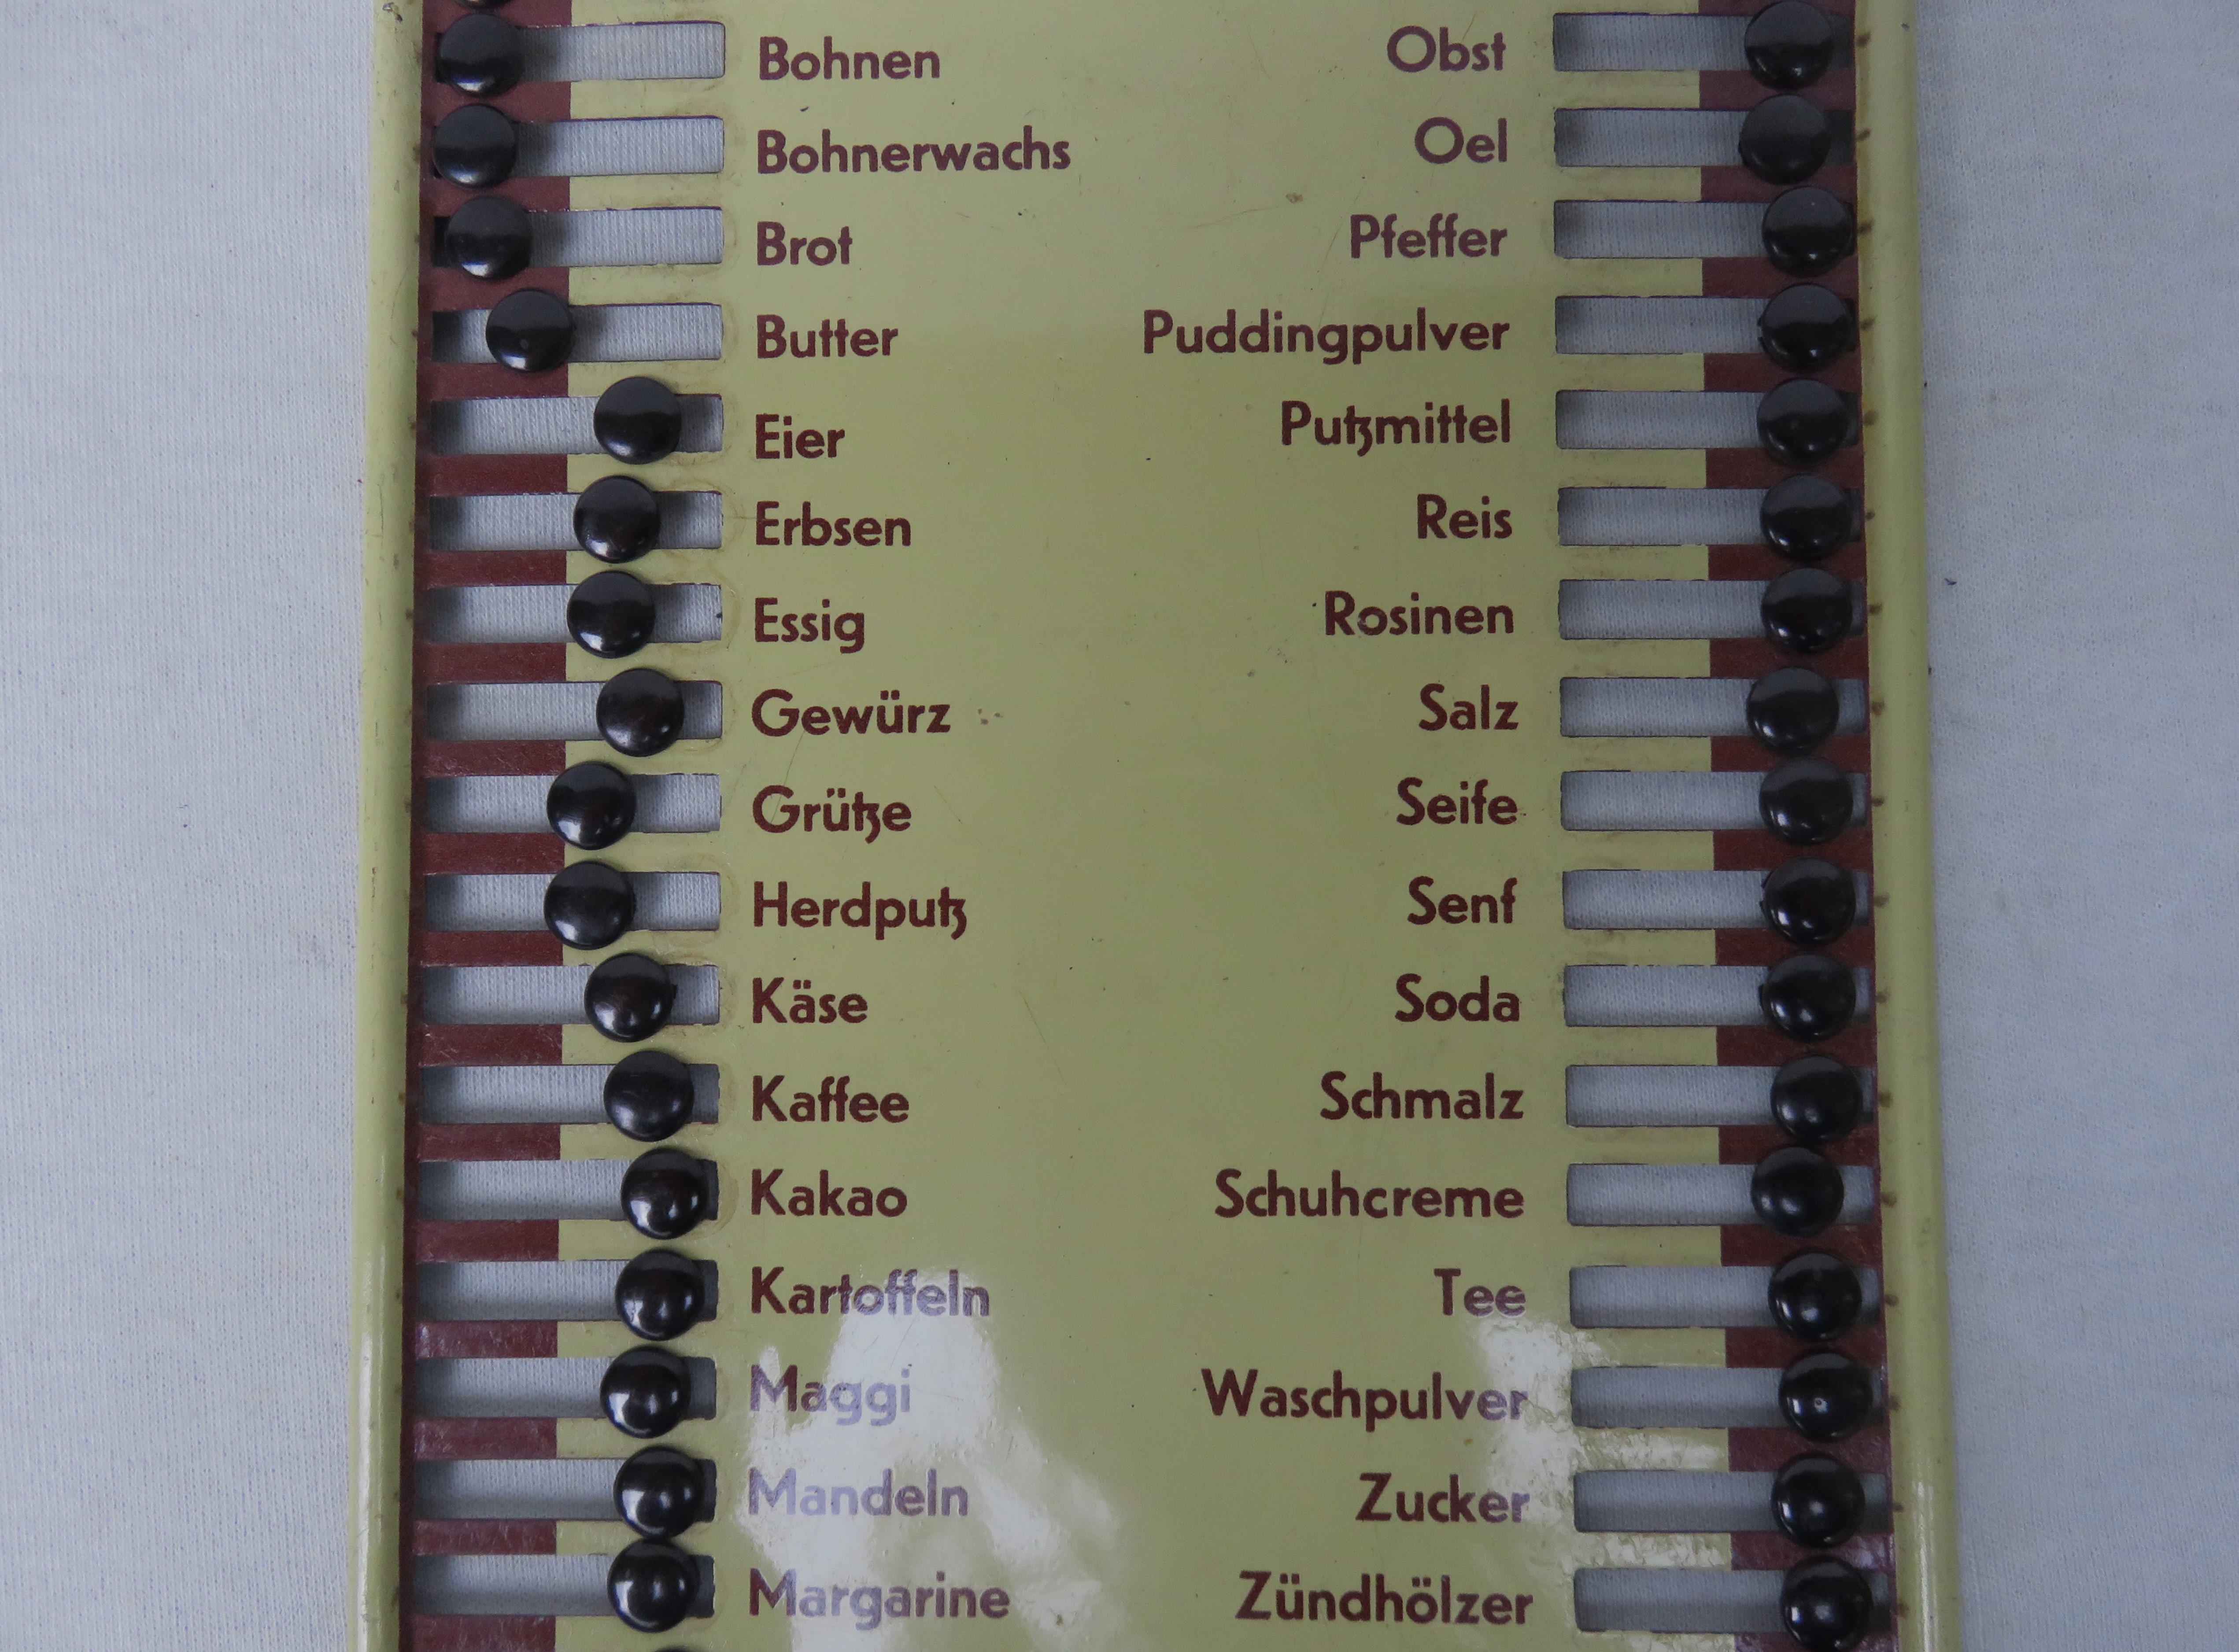 Bohnen
Bohnerwachs
Brot
Butter
Eier
Erbsen
Essig
Gewürz
Grütze
Herdputz
Käse
Kaffee
Kakao
Kartoffeln
Maggi
Mandeln
Margarine
Obst
Oel
Pfeffer
Puddingpulver
Putzmittel
Reis
Rosinen
Salz
Seife
Senf
Soda
Schmalz
Schuhcreme
Tee
Waschpulver
Zucker
Zündhölzer